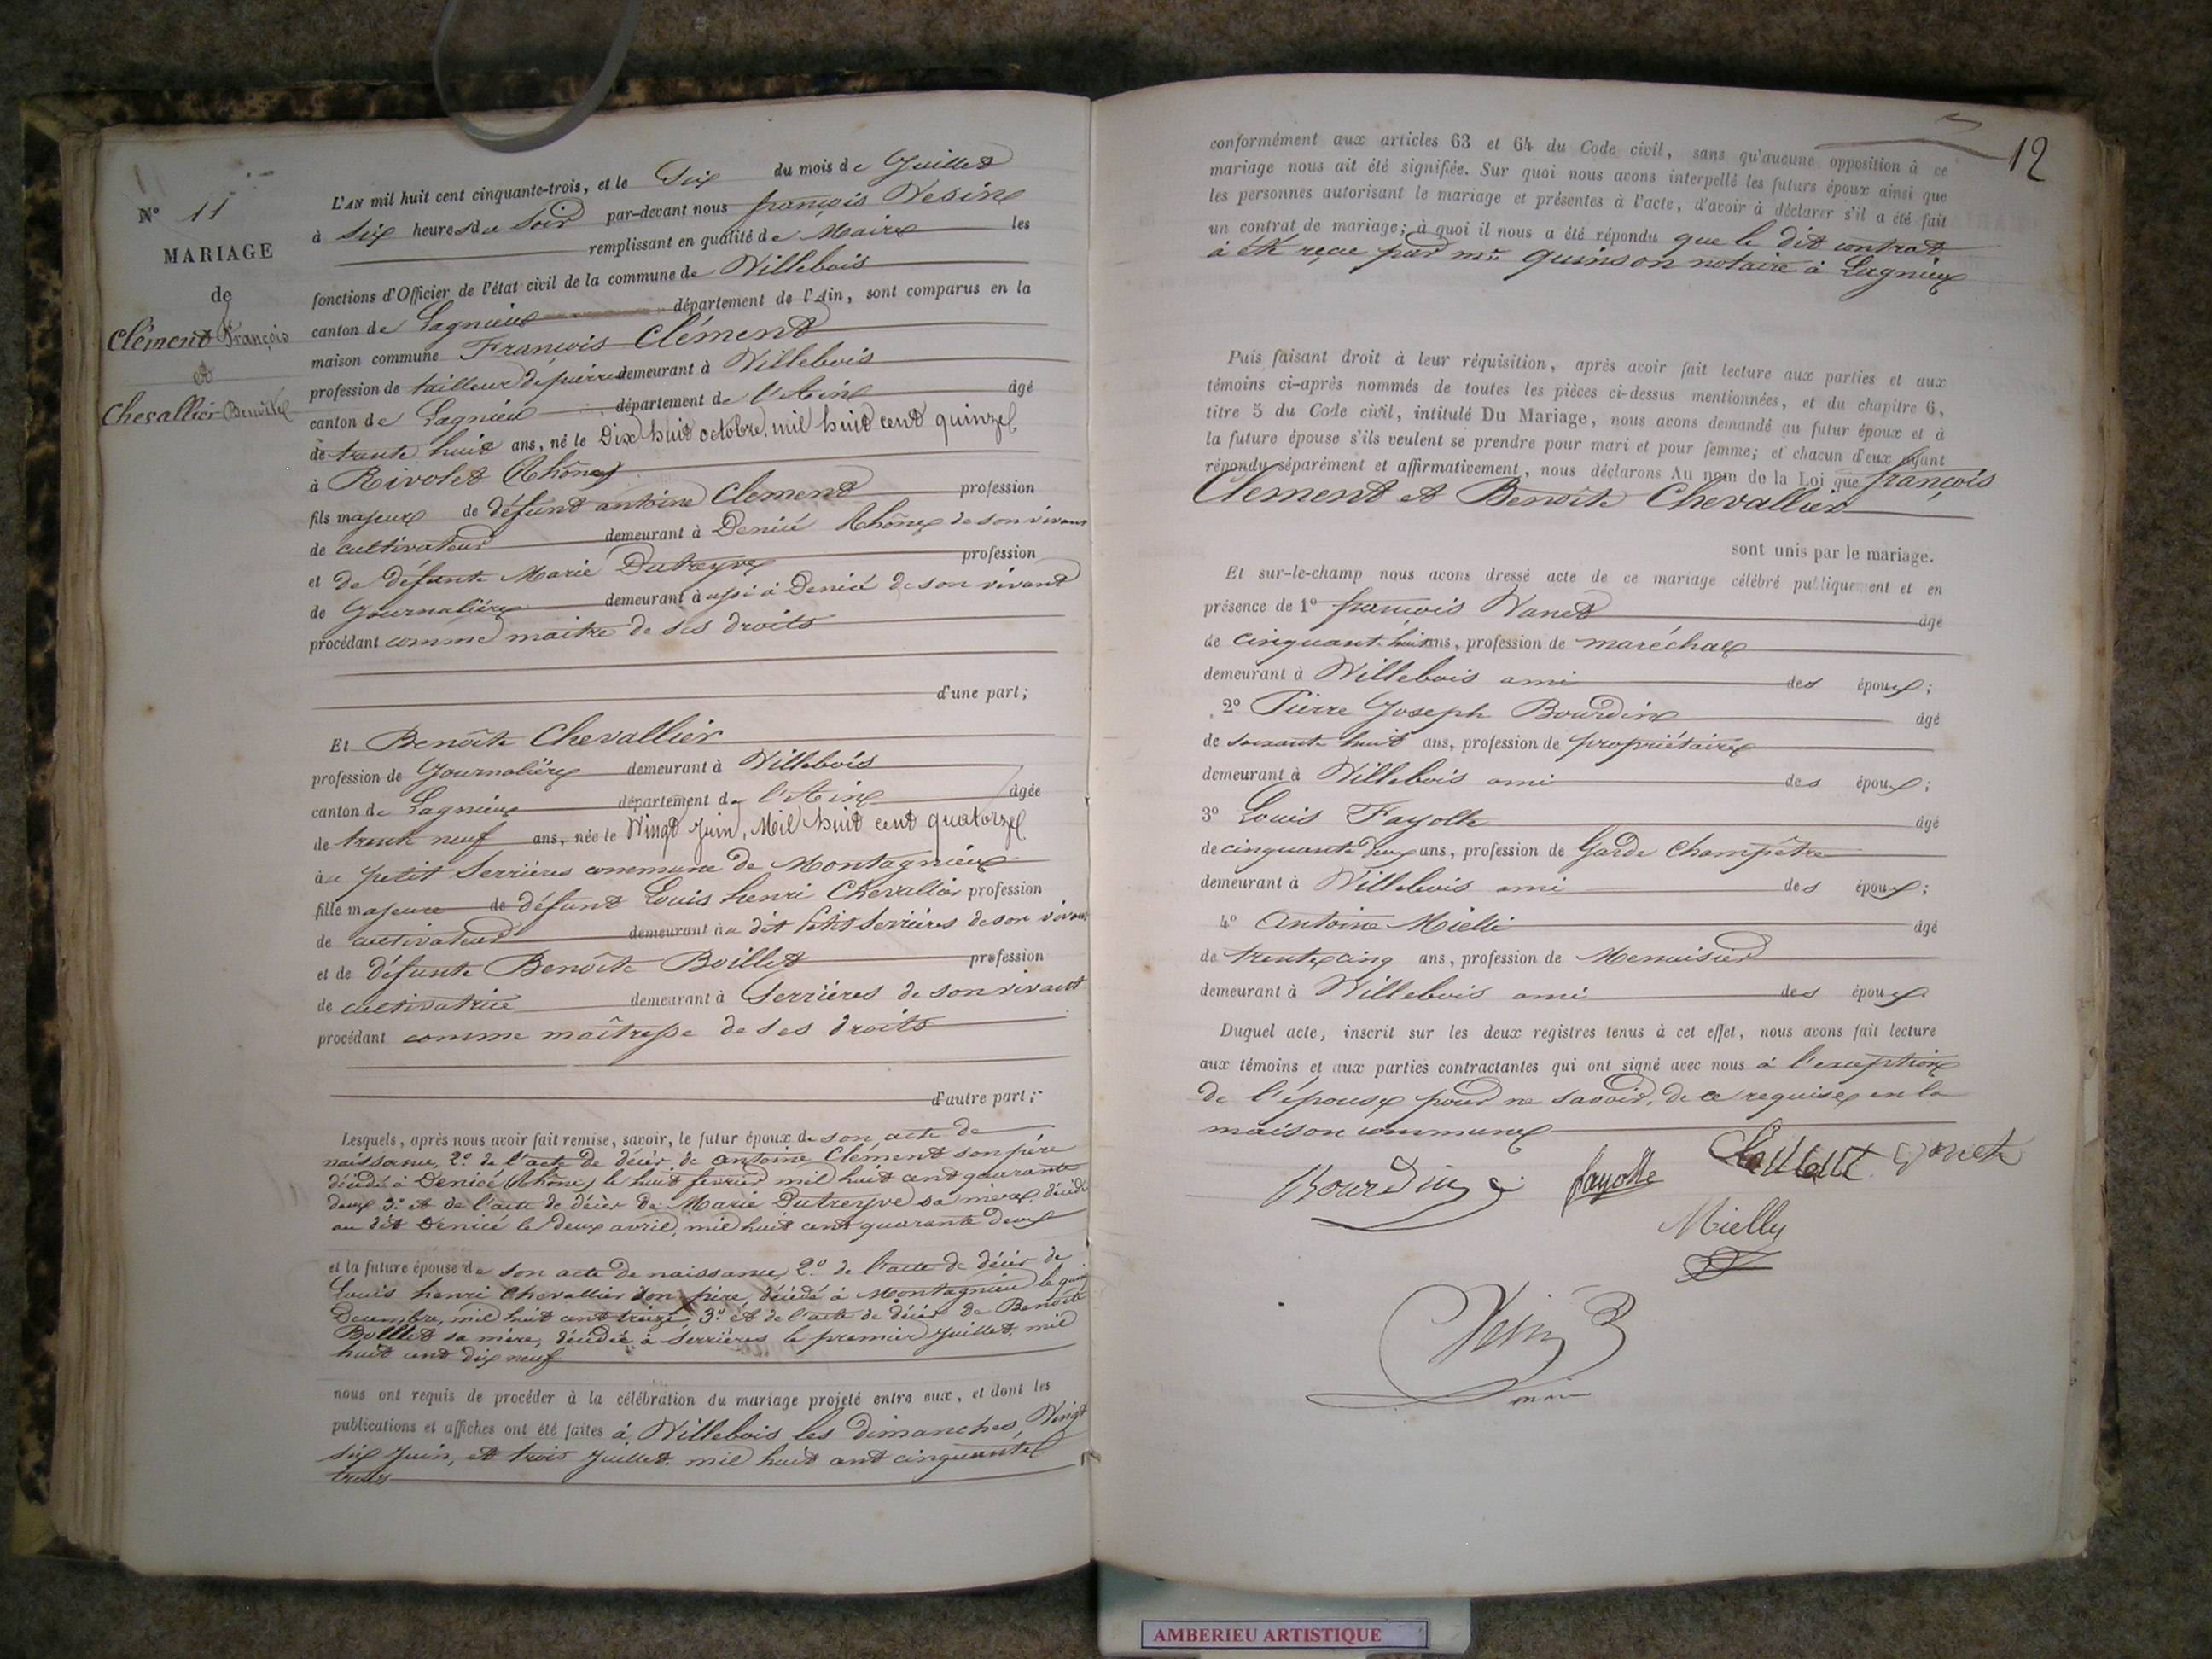 N° 11
MARIAGE
de
Clément François
et
Chevallier Benoîte
L'AN mil huit cent cinquante-trois, et le Six du mois de Juillet
à six heures du Soir par-devant nous françois Vesin
remplissant en qualité de Maire les
fonctions d'Officier de l'état civil de la commune de Villebois
canton de Lagnieu département de l'Ain, sont comparus en la
maison commune François Clément
profession de tailleur de pierres demeurant à Villebois
canton de Lagnieu département de l'Ain âgé
de trante huit ans, né le Dix huit octobre, mil huit cent quinze
à Rivolet (Rhône)
fils majeur de défunt antoine Clement profession
de cultivateur demeurant à Denicé Rhône de son vivant
et de défunte Marie Dutreyve profession
de Journalière demeurant aussi à Denicé de son vivant
procédant comme maitre de ses droits
d'une part;
Et Benoîte Chevallier
profession de Journalière demeurant à Villebois
canton de Lagnieu département de l'Ain âgée
de trente neuf ans, née le Vingt Juin, Mil huit cent quatorze
au petit Serrières commune de Montagnieu
fille majeure de défunt Louis henri Chevallier profession
de cultivateur demeurant au dit Petit Serrières de son vivant
et de défunte Benoîte Boillet profession
de cultivatrice demeurant à Serrières de son vivant
procédant comme maîtresse de ses droits
d'autre part;
Lesquels, après nous avoir fait remise, savoir, le futur époux de son acte de
naissance, 2° de l'acte de décès de antoine Clément son père
décédé à Denicé (Rhône) le huit fevrier mil huit cent quarante
deux 3° et de l'acte de décès de Marie Dutreyve sa mère, décédé
au dit Denicé le deux avril, mil huit cent quarante deux
et la future épouse de son acte de naissance, 2° de l'acte de décès de
Louis henri Chevallier son père, décédé à Montagnieu le
Decembre, mil huit cent treize, 3° et de l'acte de décès de Benoîte
Boillet sa mère, décédée à Serrières le premier Juillet, mil
huit cent dix neuf
nous ont requis de procéder à la célébration du mariage projeté entre eux, et dont les
publications et affiches ont été faites à Villebois les dimanches, Vingt
six Juin, et trois Juillet mil huit cent cinquante
trois
12
conformément aux articles 63 et 64 du Code civil, sans qu'aucune opposition à ce
mariage nous ait été signifiée. Sur quoi nous avons interpellé les futurs époux ainsi que
les personnes autorisant le mariage et présentes à l'acte, d'avoir à déclarer s'il a été fait
un contrat de mariage; à quoi il nous a été répondu que le dit contrat
à été reçue par mre quinson notaire à Lagnieu
Puis faisant droit à leur réquisition, après avoir fait lecture aux parties et aux
témoins ci-après nommés de toutes les pièces ci-dessus mentionnées, et du chapitre 6,
titre 5 du Code civil, intitulé Du Mariage, nous avons demandé au futur époux et à
la future épouse s'ils veulent se prendre pour mari et pour femme; et chacun d'eux ayant
répondu séparément et affirmativement, nous déclarons Au nom de la Loi que françois
Clement et Benoîte Chevallier
sont unis par le mariage.
Et sur-le-champ nous avons dressé acte de ce mariage célébré publiquement et en
présence de 1° françois Vanet âgé
de cinquant-huit ans, profession de maréchal
demeurant à Villebois ami des époux;
2° Pierre Joseph Bourdin âgé
de soixante huit ans, profession de propriétaire
demeurant à Villebois ami des époux;
3° Louis Fayolle âgé
de cinquante deux ans, profession de Garde Champêtre
demeurant à Villebois ami des époux;
4° Antoine Mielli âgé
de trente cinq ans, profession de Menuisier
demeurant à Villebois ami des époux
Duquel acte, inscrit sur les deux registres tenus à cet effet, nous avons fait lecture
aux témoins et aux parties contractantes qui ont signé avec nous à l'exception
de l'épouse pour ne savoir, de ce requise, en la
maison commune
Bourdin fayolle Clément Vanet
Mielly
Vesin
maire
AMBERIEU ARTISTIQUE